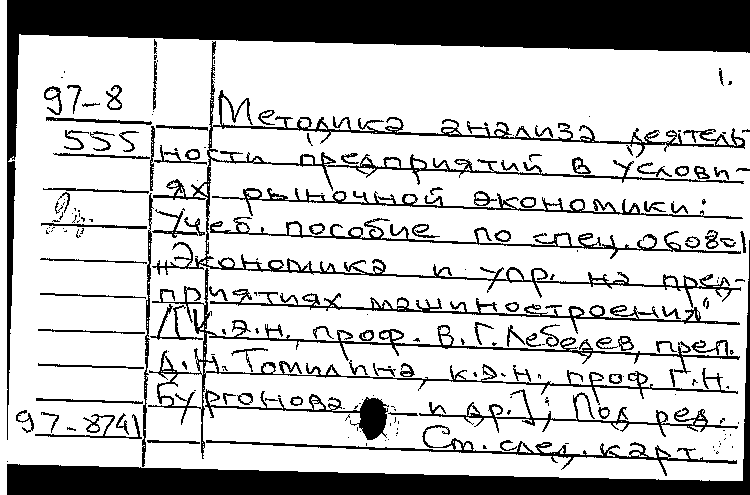 1.
97-8
Методика анализа деятель-
555
ности предприятий в услови-
ях рыночной экономики:
Учеб. пособие по спец. 060801
„Экономика и упр. на пред-
приятиях машиностроения"
/[К.э.н., проф. В.Г. Лебедев, преп.
Д.Н. Томилина, к.э.н., проф. Г.Н.
Бургонова и др.]; Под ред.
97-8741
См. след. карт.